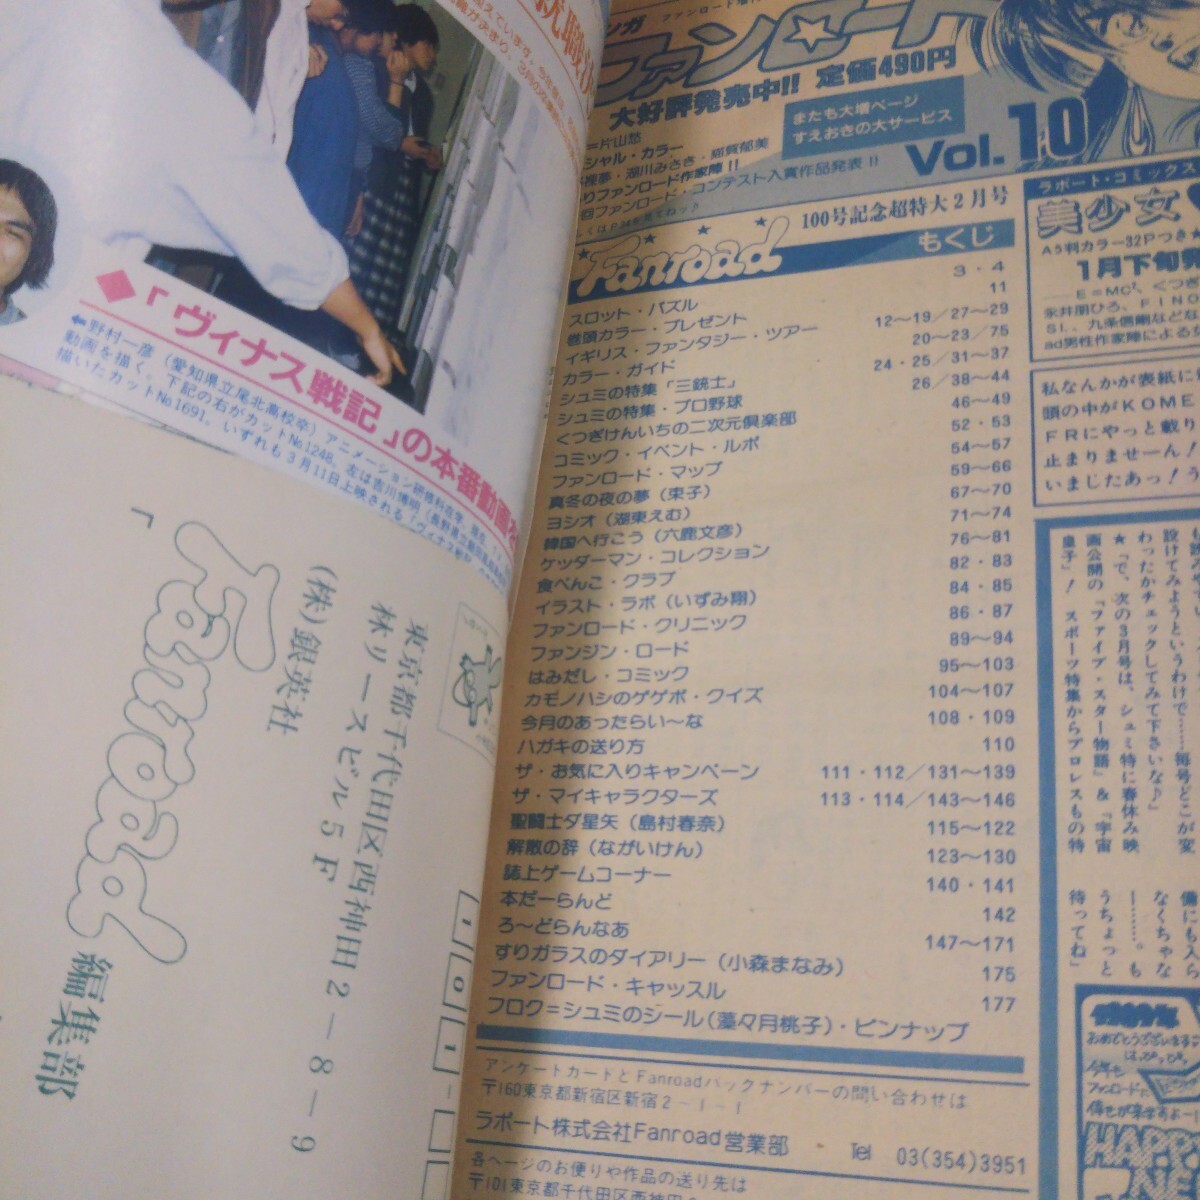 ◆「ヴィナス戦記」の本番動画を
←野村一彦（愛知県立尾北高校卒）アニメーション研修科在学。現在、
動画を描く。下記の右がカットNo.1248。左は吉川博明
描いたカットNo.1691。いずれも3月11日上映される「ヴィナス戦記
東京都千代田区西神田2-8-9
林リースビル5F
(株)銀英社
「Fanroad編集部
101-
ファンロード
大好評発売中!! 定価490円
またも大増ページ
すえおきの大サービス
Vol.10
＝片山愁
シャル・カラー
夢・湖川みさき・猫賀郁美
りファンロード作家陣!!
回ファンロード・コンテスト入賞作品発表!!
100号記念超特大2月号
Fanroad もくじ
3・4
スロット・パズル 11
巻頭カラー・プレゼント 12〜19／27〜29
イギリス・ファンタジー・ツアー 20〜23／75
カラー・ガイド 24・25／31〜37
シュミの特集「三銃士」 26／38〜44
シュミの特集・プロ野球 46〜49
くつぎけんいちの二次元倶楽部 52・53
コミック・イベント・ルポ 54〜57
ファンロード・マップ 59〜66
真冬の夜の夢（束子） 67〜70
ヨシオ（湖東えむ） 71〜74
韓国へ行こう（六鹿文彦） 76〜81
ケッダーマン・コレクション 82・83
食べんこ・クラブ 84・85
イラスト・ラボ（いずみ翔） 86・87
ファンロード・クリニック 89〜94
ファンジン・ロード 95〜103
はみだし・コミック 104〜107
カモノハシのゲゲボ・クイズ 108・109
今月のあったらい〜な 110
ハガキの送り方 111・112／131〜139
ザ・お気に入りキャンペーン 113・114／143〜146
ザ・マイキャラクターズ 115〜122
聖闘士ダ星矢（島村春奈） 123〜130
解散の辞（ながいけん） 140・141
誌上ゲームコーナー 142
本だーらんど 147〜171
ろ〜どらんなあ 175
すりガラスのダイアリー（小森まなみ） 177
ファンロード・キャッスル
フロク＝シュミのシール（藻々月桃子）・ピンナップ
アンケートカードとFanroadバックナンバーの問い合わせは
〒160東京都新宿区新宿2-1-1
ラポート株式会社Fanroad営業部 Tel 03(354)3951
各ページのお便りや作品の送り先は
〒101東京都千代田区西神田
ラポート・コミックス
美少女
A5判カラー32Pつき★
1月下旬発
E=MC²、くつぎ
永井朋ひろ、FINO
SI、九条信剛などな
ad男性作家陣による
私なんかが表紙に
頭の中がKOME
FRにやっと載り
止まりませーん！
いまじたあっ！う
設けてみようというわけで……毎号どこが変
わったかチェックしてみて下さいな♪
★「で、次の3月号は、シュミ特に春休み映
画公開の「ファイブ・スター物語」＆「宇宙
皇子」！　スポーツ特集からプロレスもの特
備にも入ら
なくちゃな
ー……。も
うちょっと
待ってね」
1989年
おめでとうございます
今年も
ファンロードに
HAPP